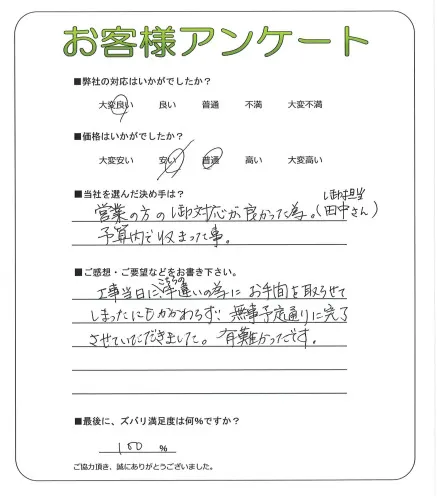 お客様アンケート
■弊社の対応はいかがでしたか？
大変良い 良い 普通 不満 大変不満
■価格はいかがでしたか？
大変安い 安い 普通 高い 大変高い
■当社を選んだ決め手は？
御担当
営業の方の御対応が良かった為。(田中さん)
予算内で収まった事。
■ご感想・ご要望などをお書き下さい。
こちらの
工事当日に、手違いの為に お手間を取らせて
しまったにもかかわらず、無事予定通りに完了
させていただきました。有難かったです。
■最後に、ズバリ満足度は何%ですか？
100 %
ご協力頂き、誠にありがとうございました。